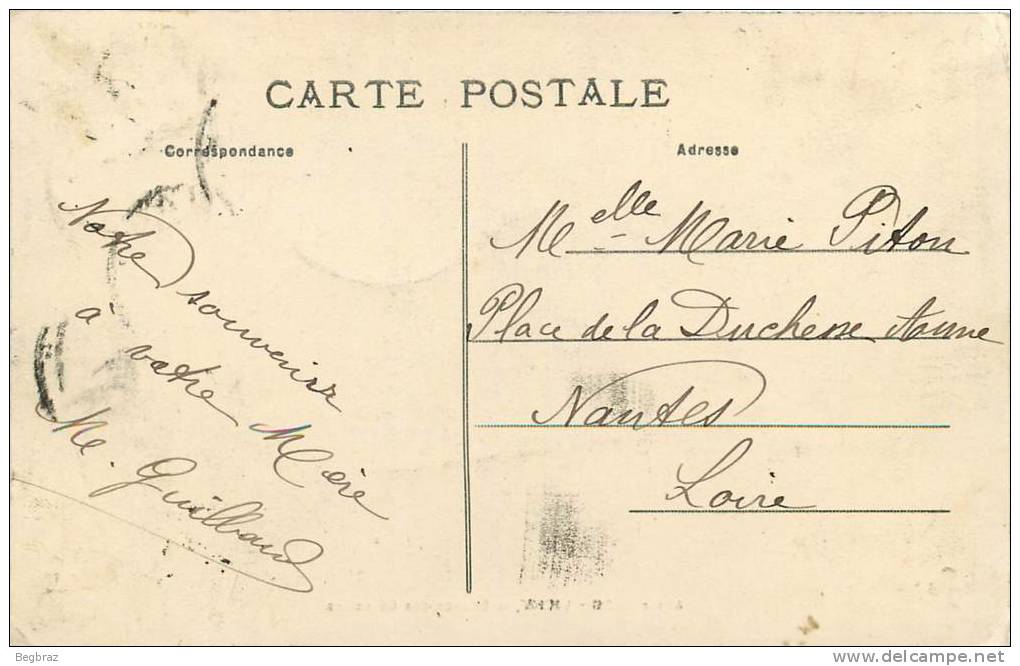 CARTE POSTALE
Correspondance
Adresse
Notre souvenir
à votre Mère
M. Guilbaud
Melle Marie Piton
Place de la Duchesse Anne
Nantes
Loire
Begbraz
www.delcampe.net